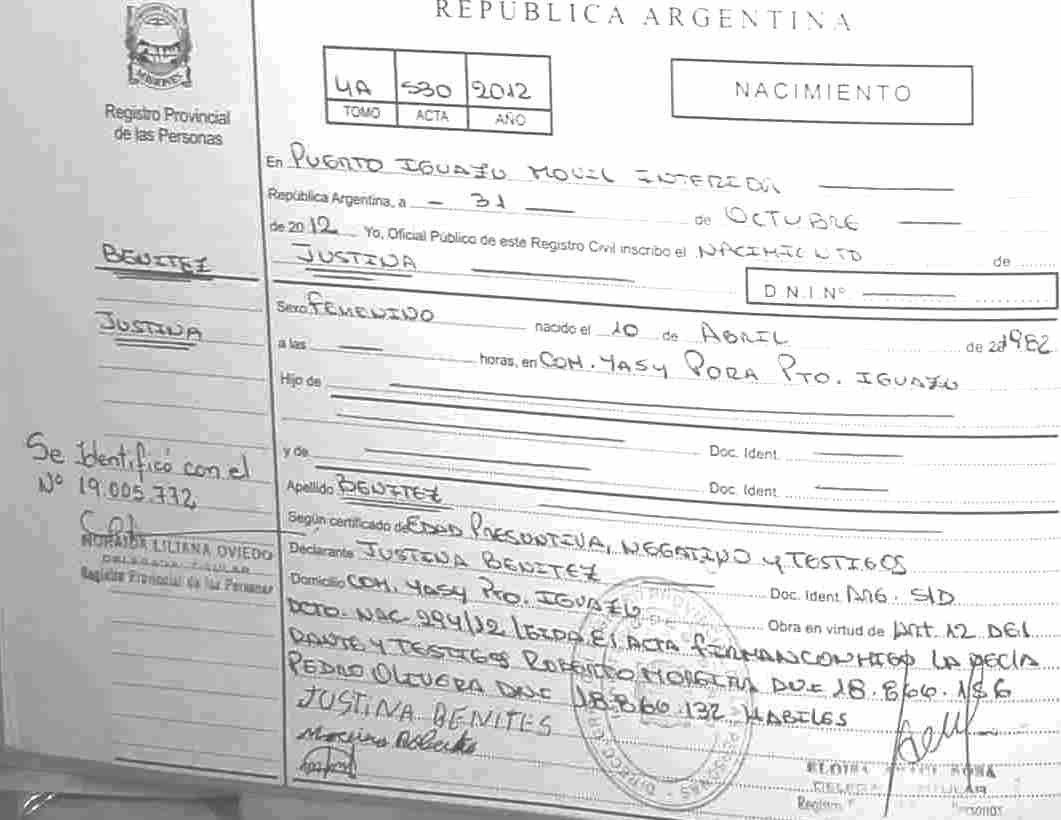 REPÚBLICA ARGENTINA
MISIONES
Registro Provincial
de las Personas
4A 530 2012
TOMO ACTA AÑO
NACIMIENTO
En PUERTO IGUAZU MOVIL INTERIOR
República Argentina, a - 31 de OCTUBRE
de 2012 Yo, Oficial Público de este Registro Civil inscribo el NACIMIENTO de
BENITEZ
JUSTINA
D.N.I.Nº
JUSTINA
Sexo FEMENINO nacido el 10 de ABRIL de 1982
a las horas, en COM. YASY PORA PTO. IGUAZU
Hijo de
Doc. Ident.
y de
Doc. Ident.
Se Identificó con el
Nº 19.005.772
NORAIDA LILIANA OVIEDO
DELEGADA TITULAR
Registro Provincial de las Personas
Apellido BENITEZ
Según certificado de EDAD PRESUNTIVA, NEGATIVO y TESTIGOS
Declarante JUSTINA BENITEZ
Doc. Ident. ARG. S/D
Domicilio COM. YASY PTO. IGUAZU
Obra en virtud de ART. 12 DEL
DCTO. NAC 294/12 LEIDA EL ACTA FIRMAN CONMIGO LA DECLA
RANTE Y TESTIGOS ROBERTO MOREIRA DNI 18.866.186
PEDRO OLIVERA DNI 18.866.132 HABILES
JUSTINA BENITES
Roberto